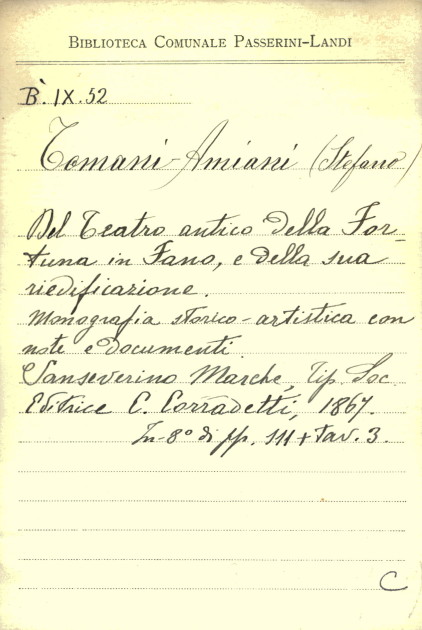 BIBLIOTECA COMUNALE PASSERINI-LANDI
B. IX. 52
Tomani-Amiani (Stefano)
Del Teatro antico della For-
tuna in Fano, e della sua
riedificazione.
Monografia storico-artistica con
note e documenti.
Sanseverino Marche, Tip. Soc.
Editrice C. Corradetti, 1867.
In-8° di pp. 111 + tav. 3.
C